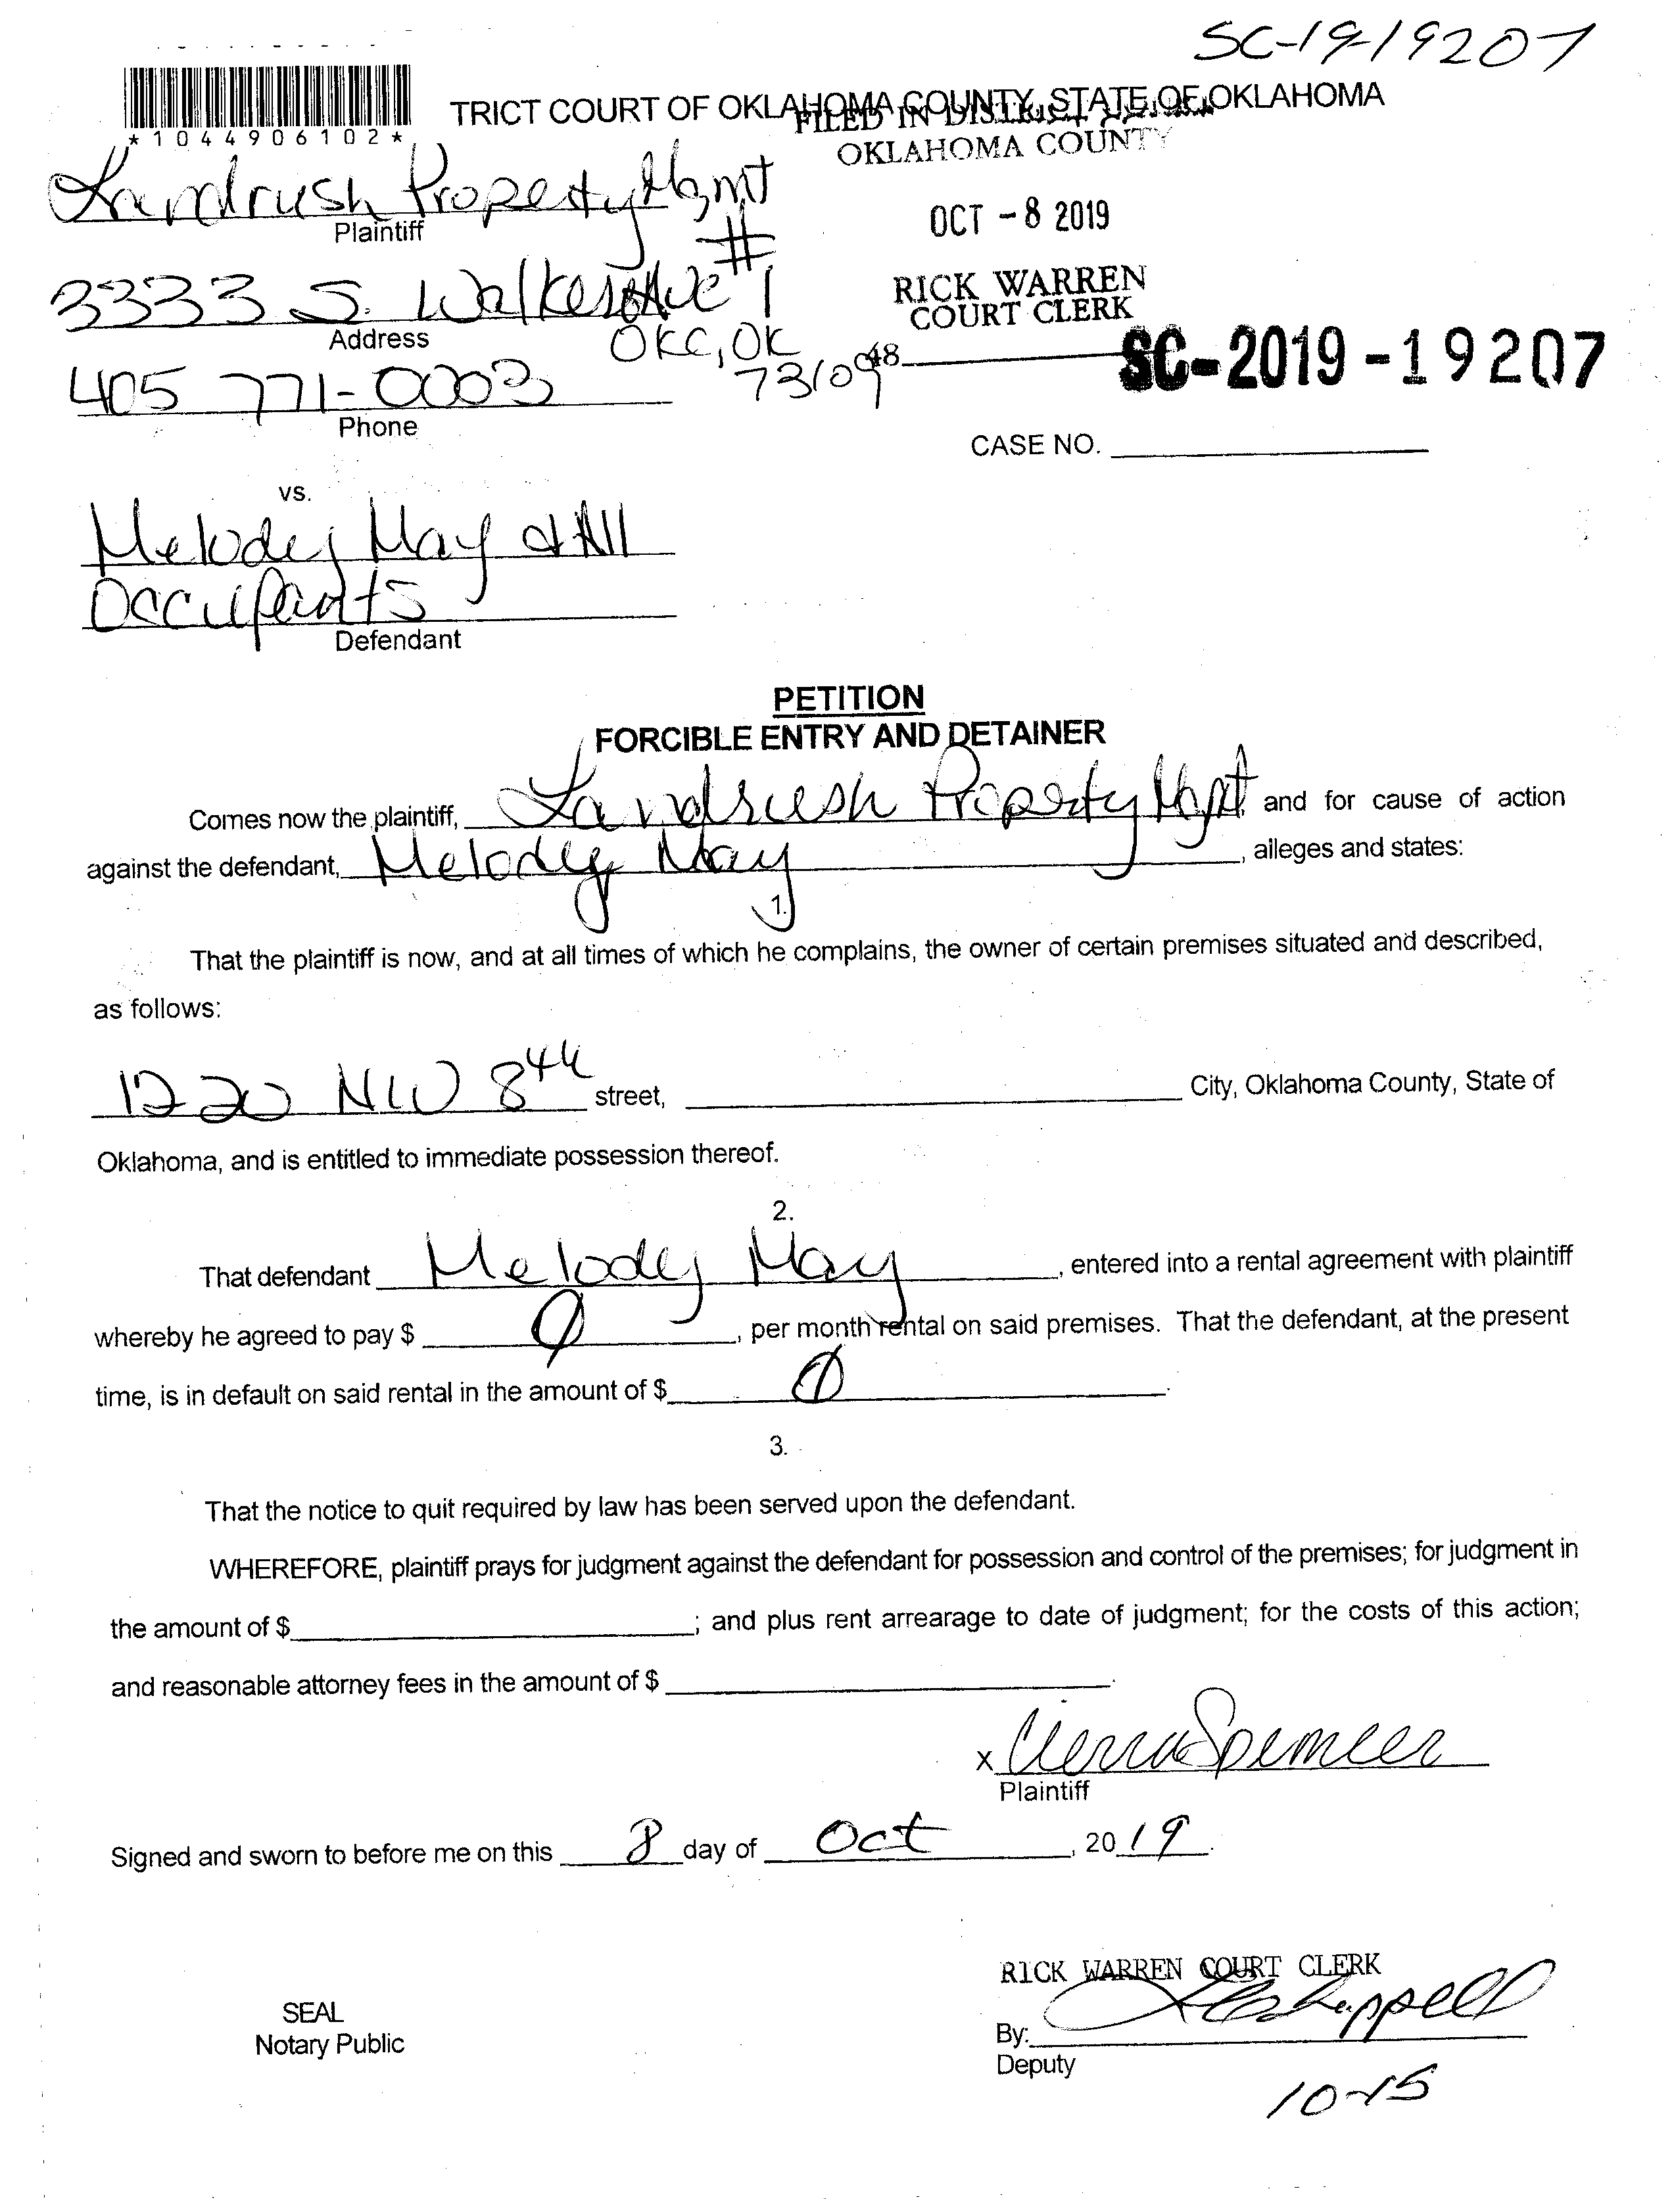 SC-19-19207
*1044906102*
TRICT COURT OF OKLAHOMA COUNTY, STATE OF OKLAHOMA
FILED IN DISTRICT COURT
OKLAHOMA COUNTY
Landrush Property Mgmt
Plaintiff
OCT - 8 2019
3333 S. Walker Ave #1
Address
RICK WARREN
COURT CLERK
OKC, OK
73109
48
SC-2019-19207
405 771-0003
Phone
CASE NO.
vs.
Melody May & All
Occupants
Defendant
PETITION
FORCIBLE ENTRY AND DETAINER
Comes now the plaintiff, Landrush Property Mgmt and for cause of action
against the defendant, Melody May, alleges and states:
1.
That the plaintiff is now, and at all times of which he complains, the owner of certain premises situated and described,
as follows:
1220 NW 8th street, City, Oklahoma County, State of
Oklahoma, and is entitled to immediate possession thereof.
2.
That defendant Melody May, entered into a rental agreement with plaintiff
whereby he agreed to pay $ 0, per month rental on said premises. That the defendant, at the present
time, is in default on said rental in the amount of $ 0.
3.
That the notice to quit required by law has been served upon the defendant.
WHEREFORE, plaintiff prays for judgment against the defendant for possession and control of the premises; for judgment in
the amount of $ ; and plus rent arrearage to date of judgment; for the costs of this action;
and reasonable attorney fees in the amount of $ .
x Cierra Spencer
Plaintiff
Signed and sworn to before me on this 8 day of Oct, 2019.
RICK WARREN COURT CLERK
SEAL
Notary Public
By:
Deputy
10-15